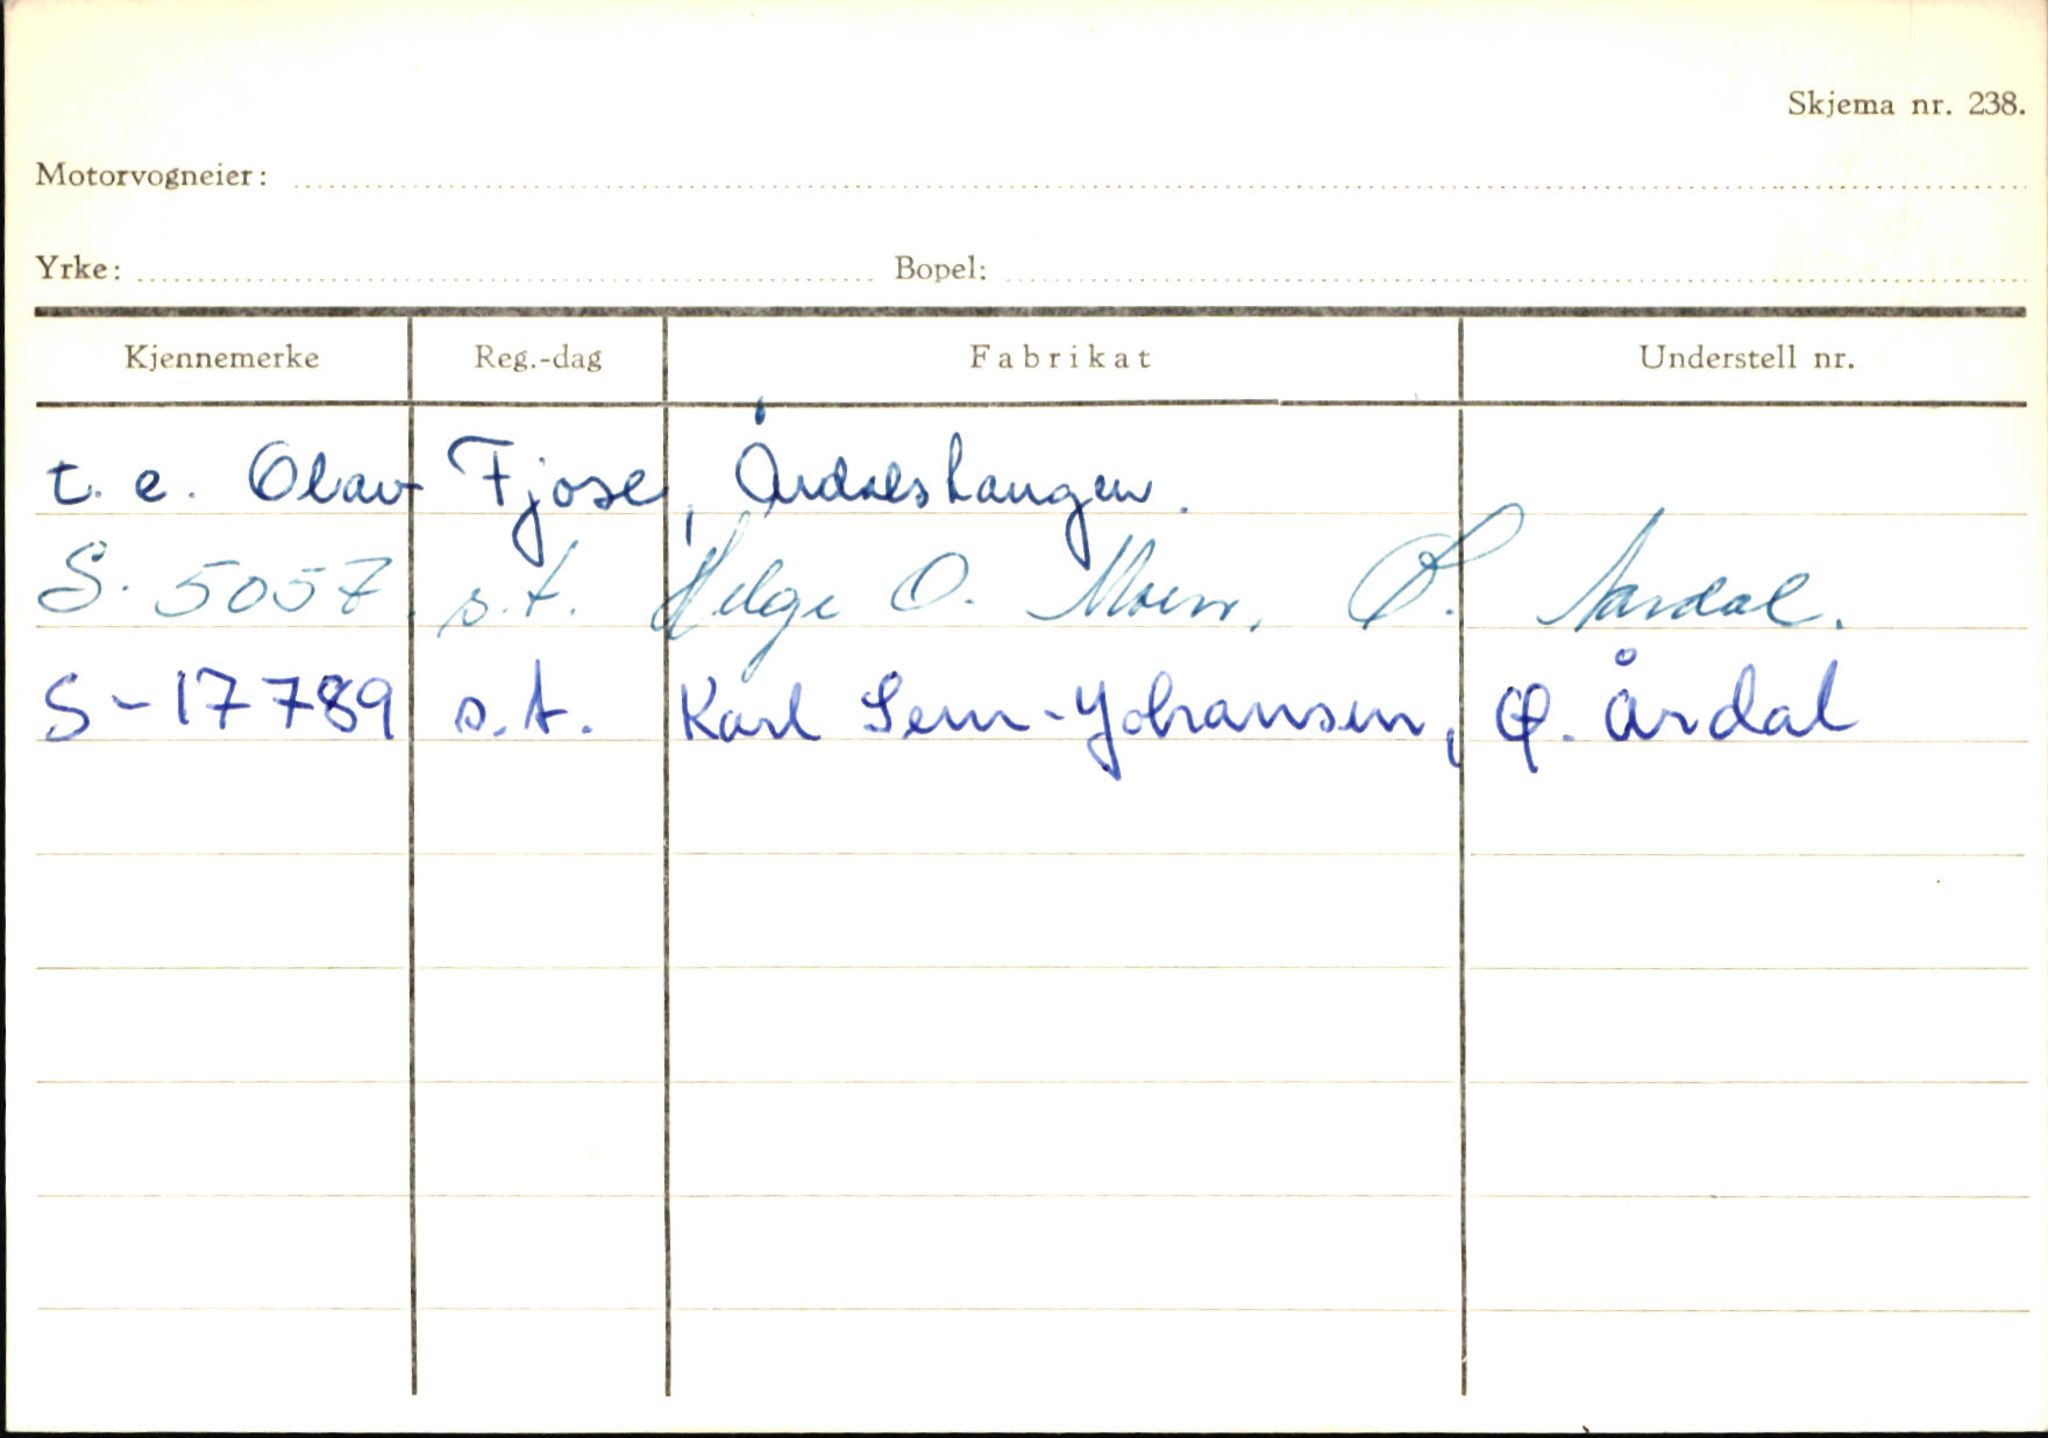 Skjema nr. 238.
Motorvogneier:
Yrke: Bopel:
Kjennemerke Reg.-dag Fabrikat Understell nr.
t. e. Olav Fjose, Årdalstangen.
S. 5057, s.t. Helge O. Moen, Ø. Aardal.
S-17789 s.t. Karl Sem-Johansen, Ø. Årdal